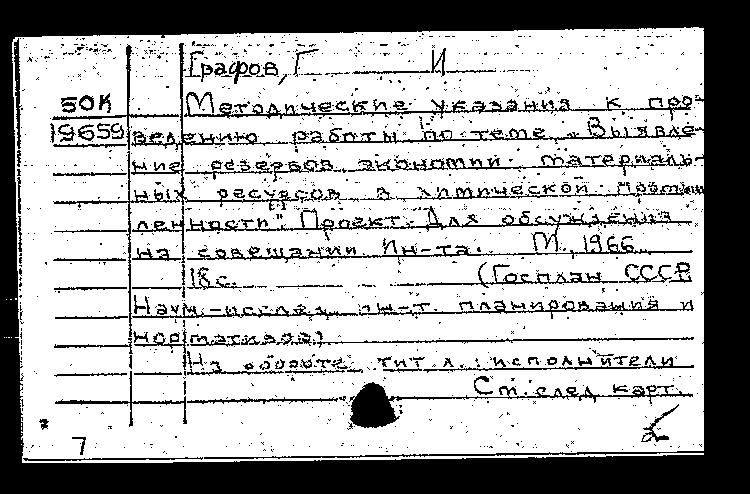 Графов, Г И
50К Методические указания к про-
19659 ведению работы по теме „Выявле-
ние резервов экономии материаль-
ных ресурсов в химической промыш
ленности". Проект. Для обсуждения
на совещании Ин-та. М., 1966
18с. (Госплан СССР.
Науч.-исслед. ин-т планирования и
нормативов)
На обороте тит. л.: исполнители
См. след карт.
7